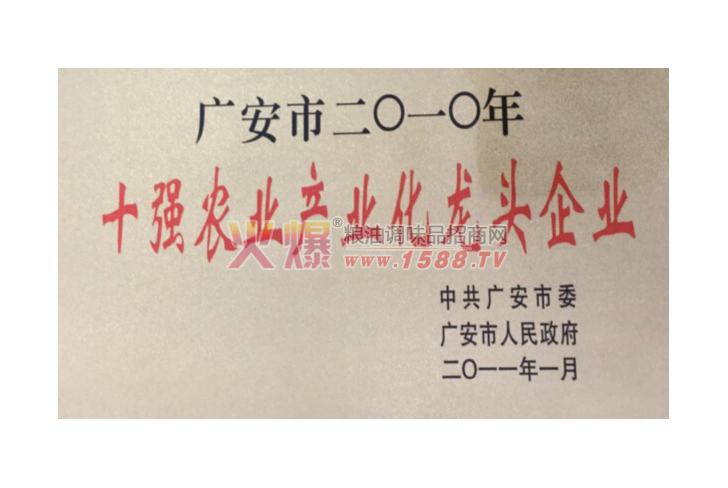 广安市二〇一〇年
十强农业产业化龙头企业
火爆®粮油调味品招商网
www.1588.TV
中共广安市委
广安市人民政府
二〇一一年一月